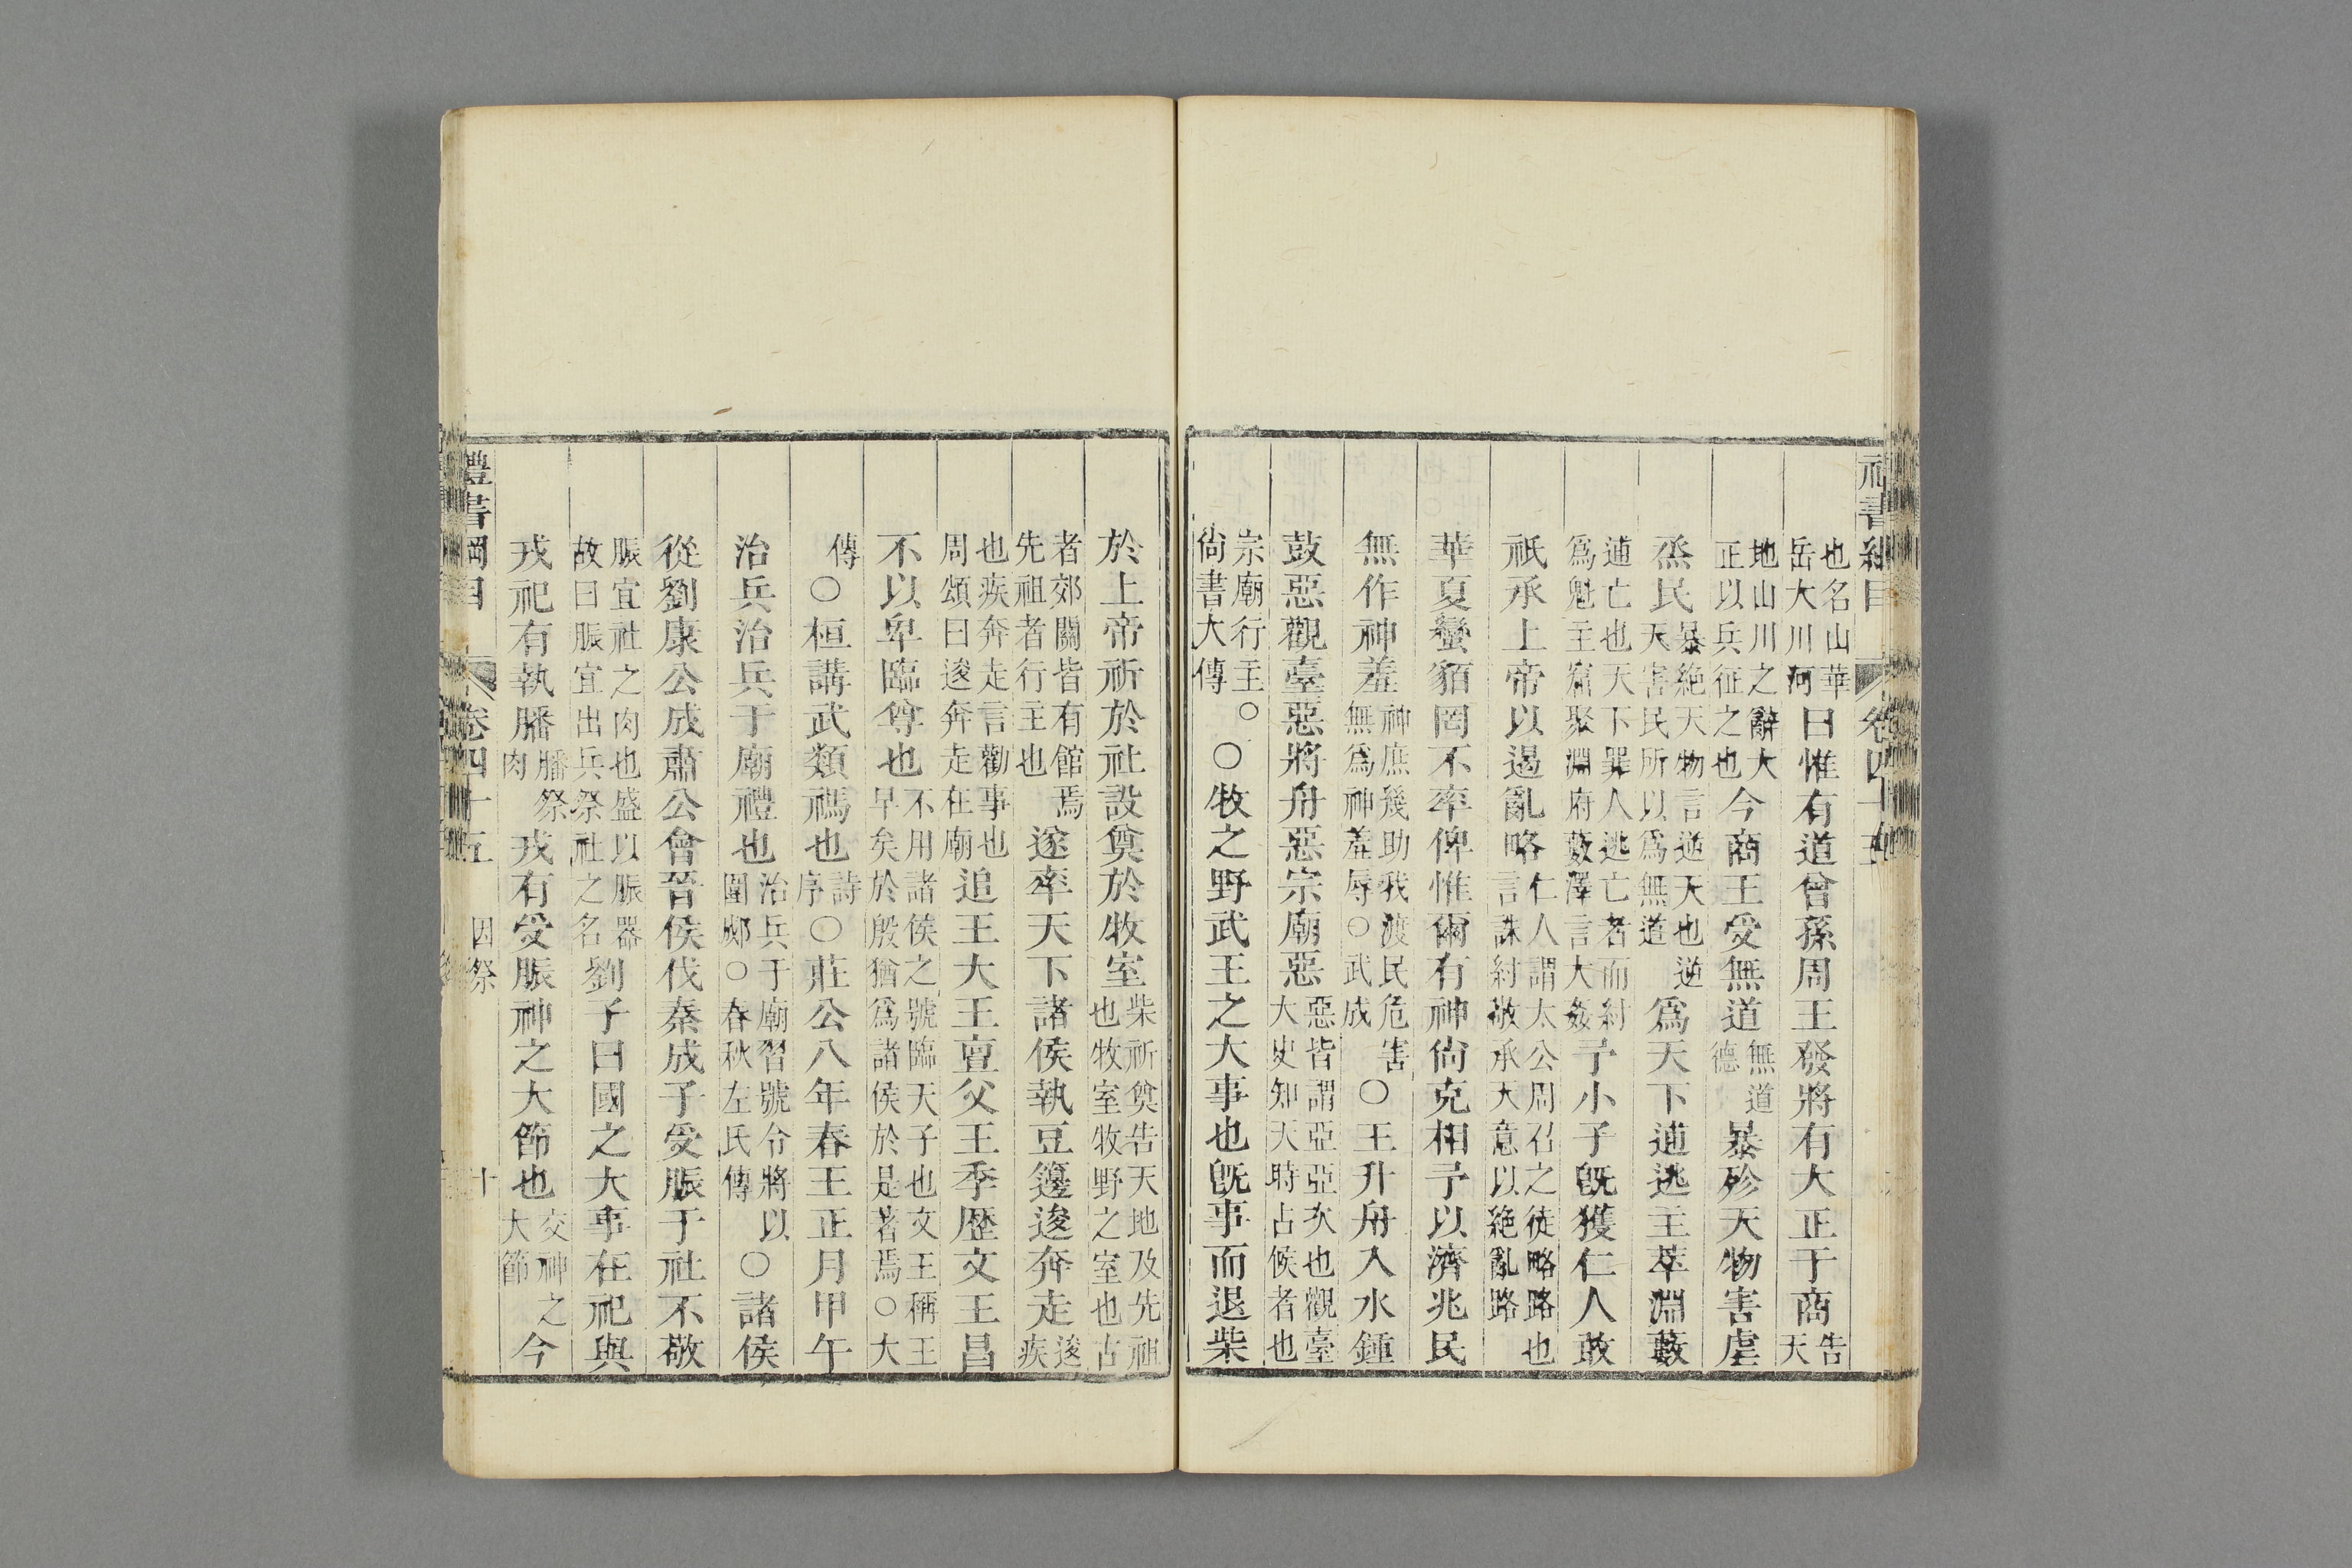 書綱目 卷四十五
也名山華岳大川河曰惟有道曾孫周王發將有大正于商告天
地山川之辭大正以兵征之也今商王受無道無道德暴殄天物害虐
烝民暴絕天物言逆天也逆天害民所以爲無道爲天下逋逃主萃淵藪
逋亡也天下罪人逃亡者而紂爲魁主窟聚淵府藪澤言大姦予小子旣獲仁人敢
祇承上帝以遏亂略仁人謂太公周召之徒略路也言誅紂敬承天意以絶亂路
華夏蠻貊罔不率俾惟爾有神尙克相予以濟兆民
無作神羞神庶幾助我渡民危害無爲神羞辱○武成○王升舟入水鍾
鼓惡觀臺惡將舟惡宗廟惡惡皆謂亞亞次也觀臺大史知天時占候者也
宗廟行主○尙書大傳○牧之野武王之大事也旣事而退柴
於上帝祈於社設奠於牧室柴祈奠告天地及先祖也牧室牧野之室也古
者郊關皆有館焉先祖者行主也遂率天下諸侯執豆籩逡奔走逡疾
也疾奔走言勸事也周頌曰逡奔走在廟追王大王亶父王季歷文王昌
不以卑臨尊也不用諸侯之號臨天子也文王稱王早矣於殷猶爲諸侯於是著焉○大
傳○桓講武類禡也詩序○莊公八年春王正月甲午
治兵治兵于廟禮也治兵于廟習號令將以圍郕○春秋左氏傳○諸侯
從劉康公成肅公會晉侯伐秦成子受脤于社不敬
脤宜社之肉也盛以脤器故曰脤宜出兵祭社之名劉子曰國之大事在祀與
戎祀有執膰膰祭肉戎有受脤神之大節也交神之大節今
禮書綱目 卷四十五 因祭 十